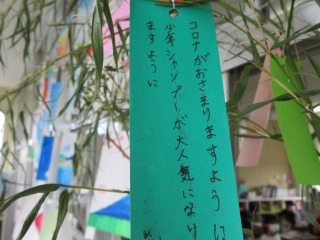 コロナがおさまりますように
少年ジャンプ―が大人気になり
ますように